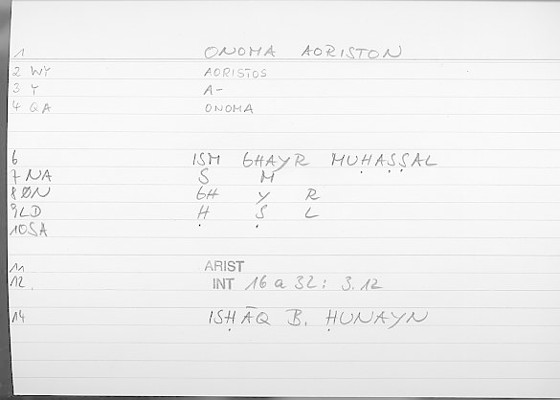 1 ONOMA AORISTON
2 WY AORISTOS
3 Y A-
4 QA ONOMA
6 ISM GHAYR MUḤAṢṢAL
7 NA S M
8 ØN GH Y R
9 LD Ḥ Ṣ L
10 SA
11 ARIST
12 INT 16 a 32 : 3.12
14 ISḤĀQ B. ḤUNAYN